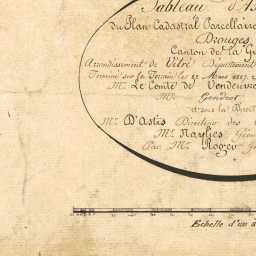 Tableau d'A
du Plan Cadastral Parcellaire
Drouges
Canton de la G
Arrondissement de Vitré Département
Terminé sur le Terrain le
Mr. Le Comte de Vendeuvre
Mr.
sous la Direct
Mr. D'Astis Directeur des
Mr. Naylies Géom
Par Mr. Roger G
Echelle d'un à